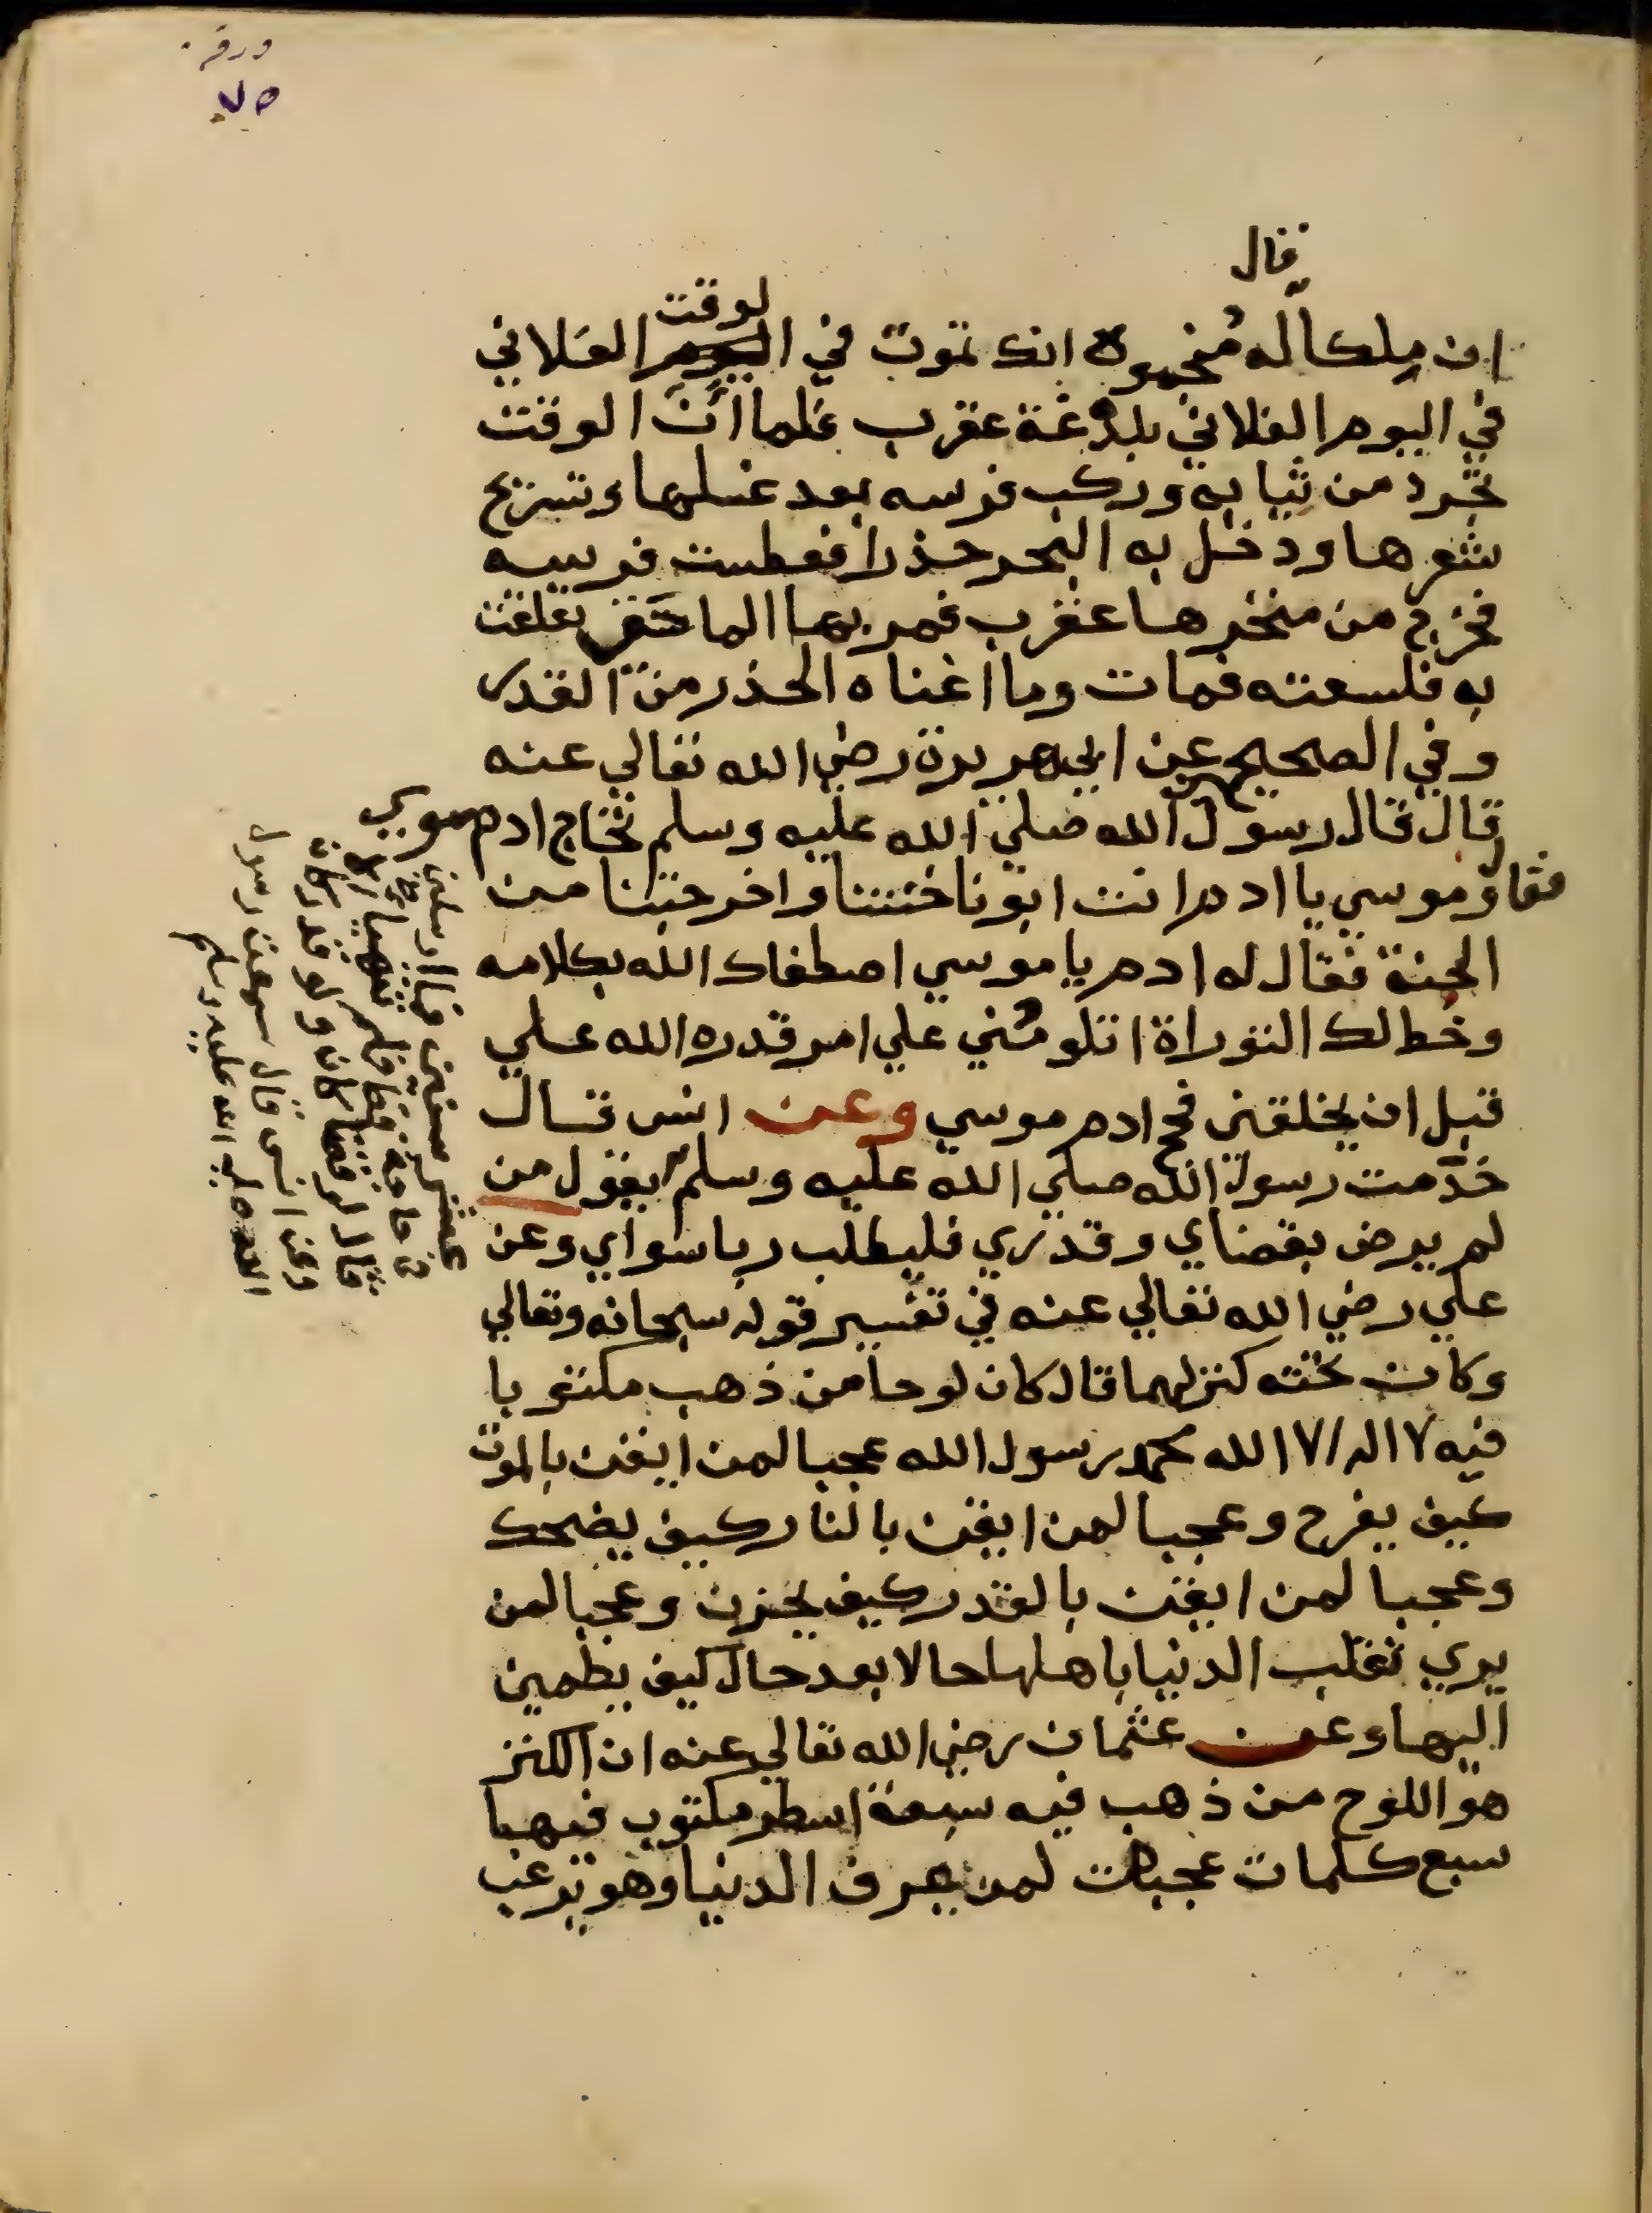 ورقة
٧٥
قال
لوقت
ان ملكا له منجموه انك تموت في اليوم الفلاني
في اليوم الفلاني بلدغة عقرب فلما آن الوقت
تجرد من ثيابه وركب فرسه بعد غسلها وتسريح
شعرها ودخل به البحر حذرا فعطست فرسه
فخرج من منخرها عقرب فمر بها الما حتى تعلقت
به فلسعته فمات وما اغناه الحذر من القدر
وفي الصحيح عن ابي هريرة رضي الله تعالي عنه
قال قال رسول الله صلي الله عليه وسلم تحاج ادم موسي
فقال موسي يا ادم انت ابونا خنتنا واخرجتنا من
الجنة فقال له ادم يا موسي اصطفاك الله بكلامه
وخط لك التوراة اتلومني علي امر قدره الله علي
قبل ان يخلقني فحج ادم موسي وعن انس قال
خدمت رسول الله صلي الله عليه وسلم يقول من
لم يرض بقضاي وقدري فليطلب ربا سواي وعن
علي رضي الله تعالي عنه في تفسير قوله سبحانه وتعالي
وكان تحته كنز لهما قال كان لوحا من ذهب مكتوبا
فيه لا اله الا الله محمد رسول الله عجبا لمن ايقن بالموت
كيف يفرح وعجبا لمن ايقن بالنار كيف يضحك
وعجبا لمن ايقن بالقدر كيف يحزن وعجبا لمن
يري تقلب الدنيا باهلها حالا بعد حال كيف يطمين
اليها وعن عثمان رضي الله تعالي عنه ان الكنز
هو اللوح من ذهب فيه سبعة اسطر مكتوب فيها
سبع كلمات عجبات لمن عرف الدنيا وهو يرغب
عشر سنين فما ارسلني
في حاجة قط فلم تتهيا الا
قال لو قضا كان ولو قدر كان
وعن انس قال سمعت رسول
الله صلي الله عليه وسلم